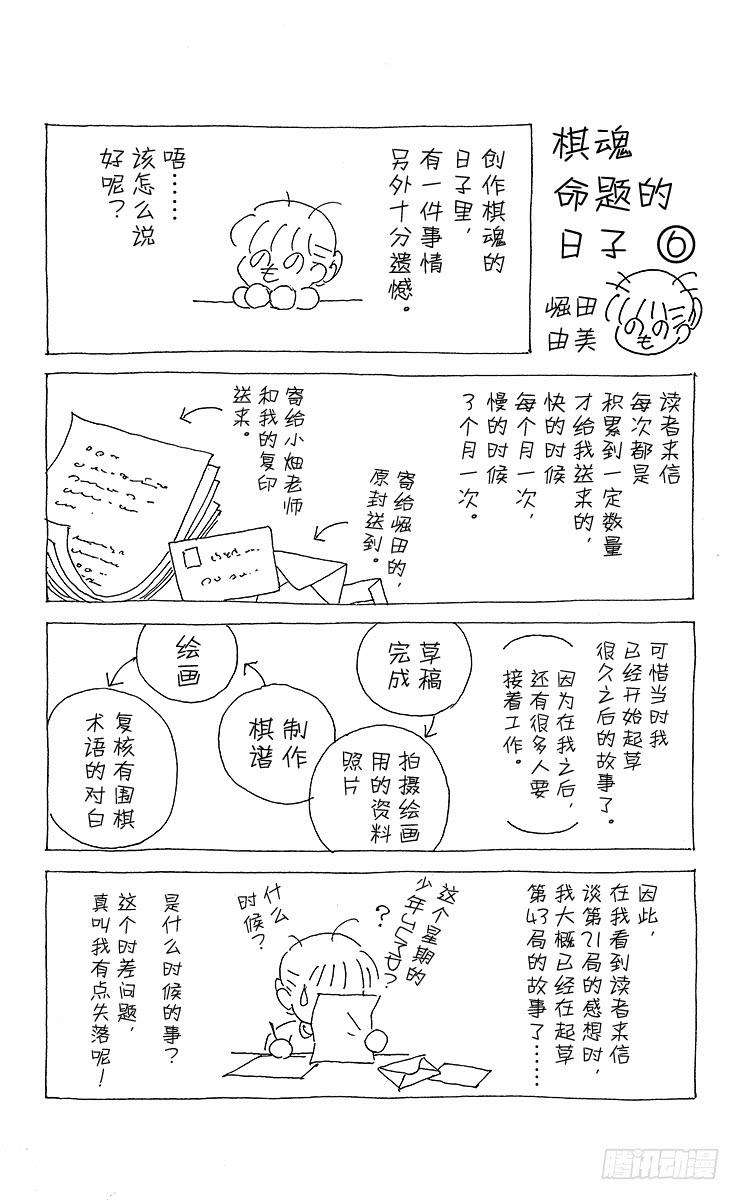 棋魂
命题的
日子 ⑥
崛田
由美
创作棋魂的
日子里,
有一件事情
另外十分遗憾。
唔……
该怎么说
好呢?
读者来信
每次都是
积累到一定数量
才给我送来的,
快的时候
每个月一次,
慢的时候
3个月一次。
寄给小畑老师
和我的复印
送来。
寄给崛田的,
原封送到。
可惜当时我
已经开始起草
很久之后的故事了。
因为在我之后,
还有很多人要
接着工作。
草稿
完成
拍摄绘画
用的资料
照片
制作
棋谱
绘画
复核有围棋
术语的对白
因此,
在我看到读者来信
谈第21局的感想时,
我大概已经在起草
第43局的故事了……
这个星期的
少年JUMP?
?
什么
时候?
是什么时候的事?
这个时差问题,
真叫我有点失落呢!
知音动漫